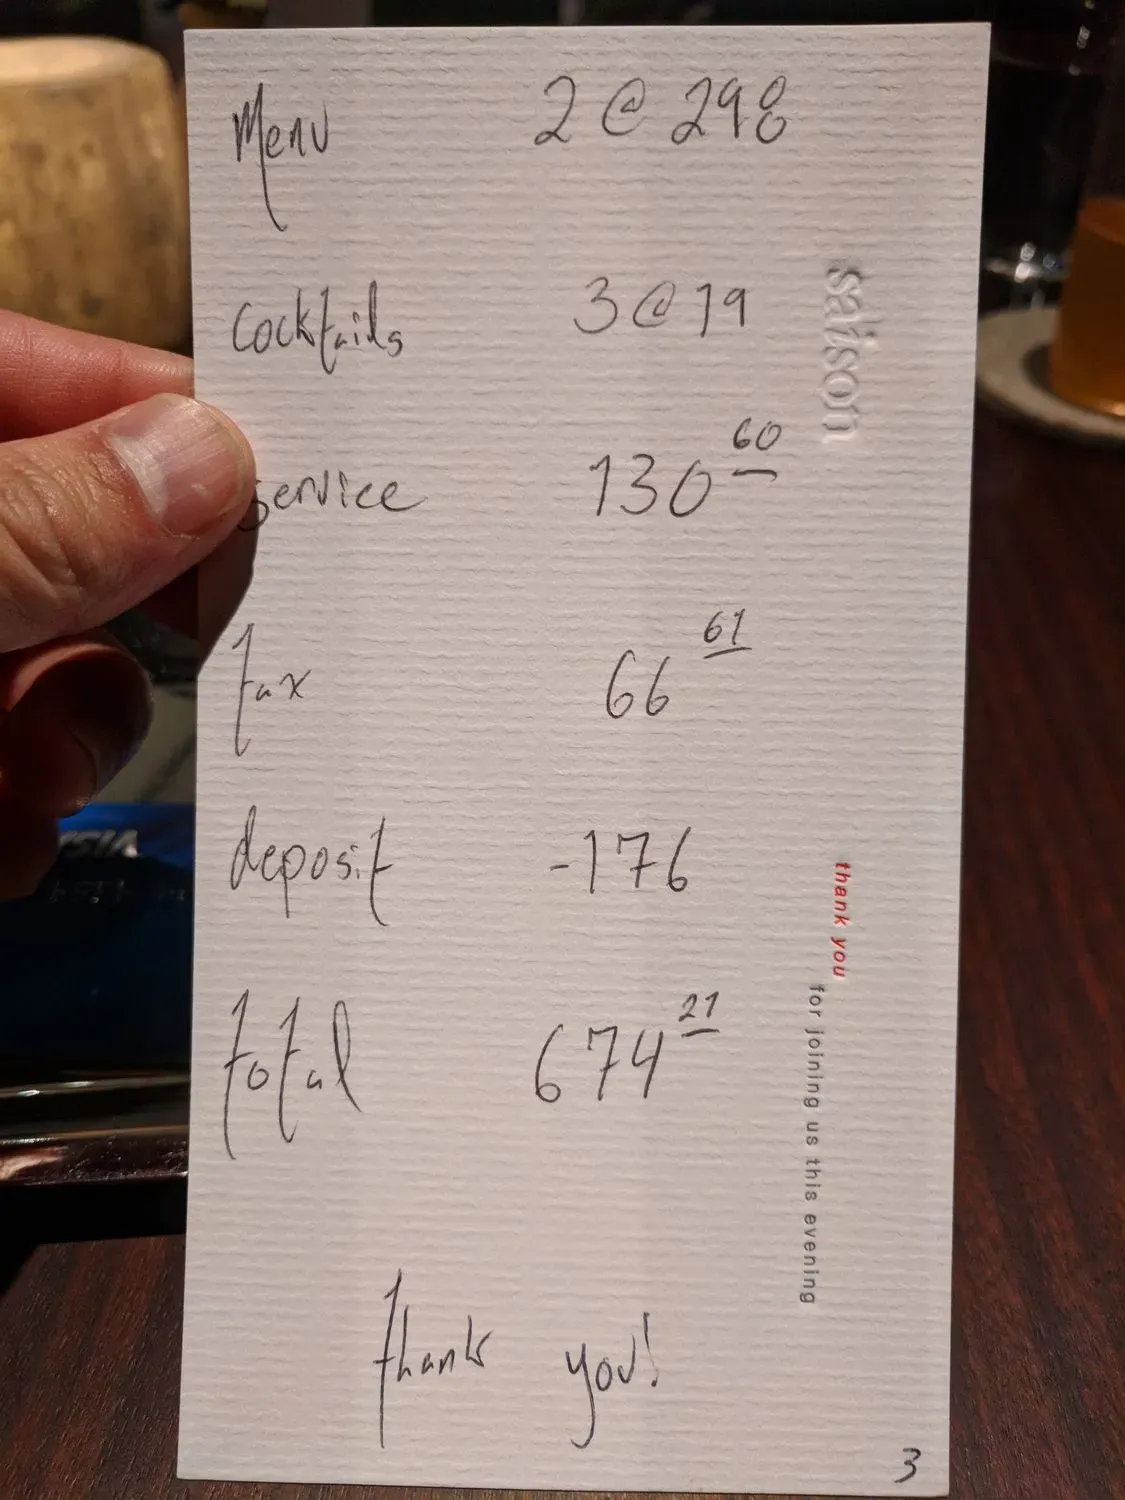 Menu 2 @ 298
Cocktails 3 @ 19
service 130 60
tax 66 61
deposit -176
total 674 21
thank you!
3
saison
thank you
for joining us this evening